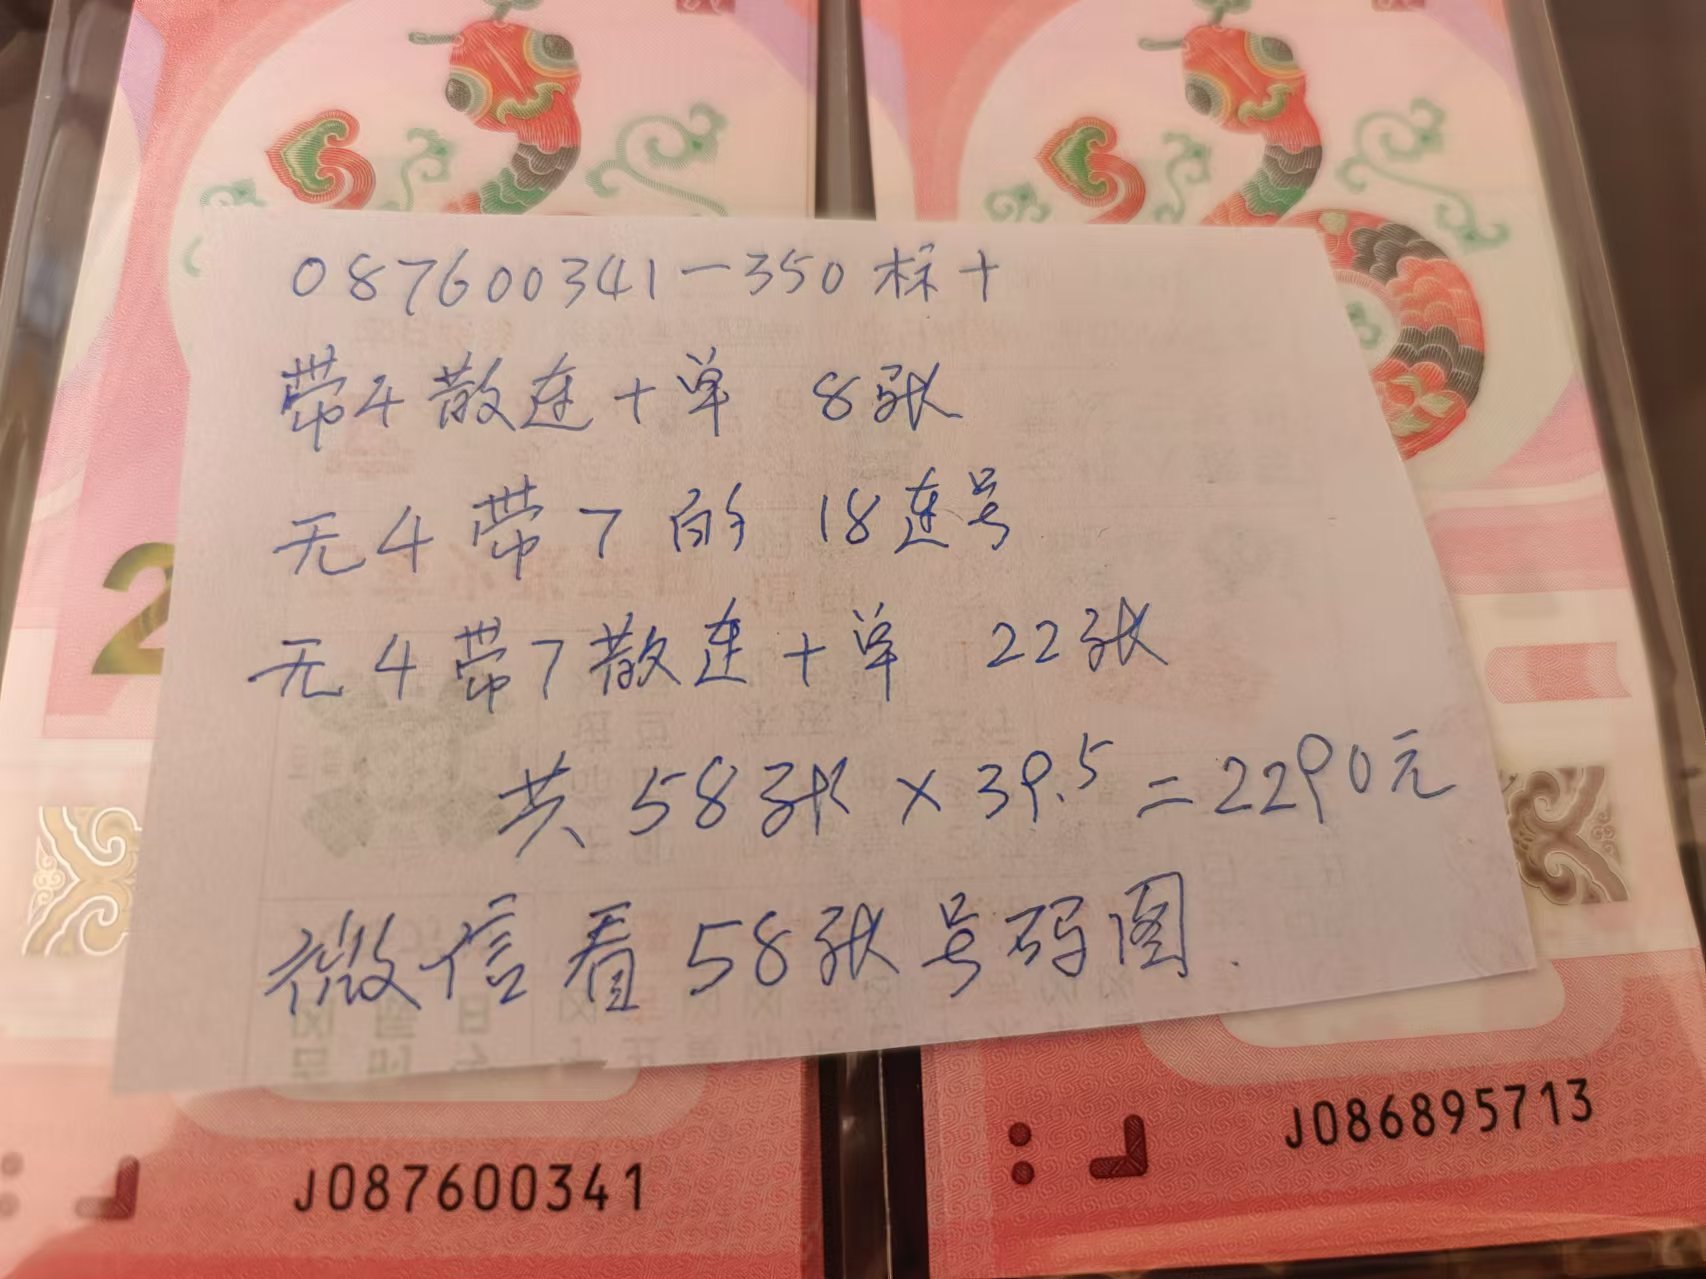 087600341-350标十
带4散连+单 8张
无4带7的 18连号
无4带7散连+单 22张
共58张×39.5=2290元
微信看58张号码图.
2
J087600341
J086895713